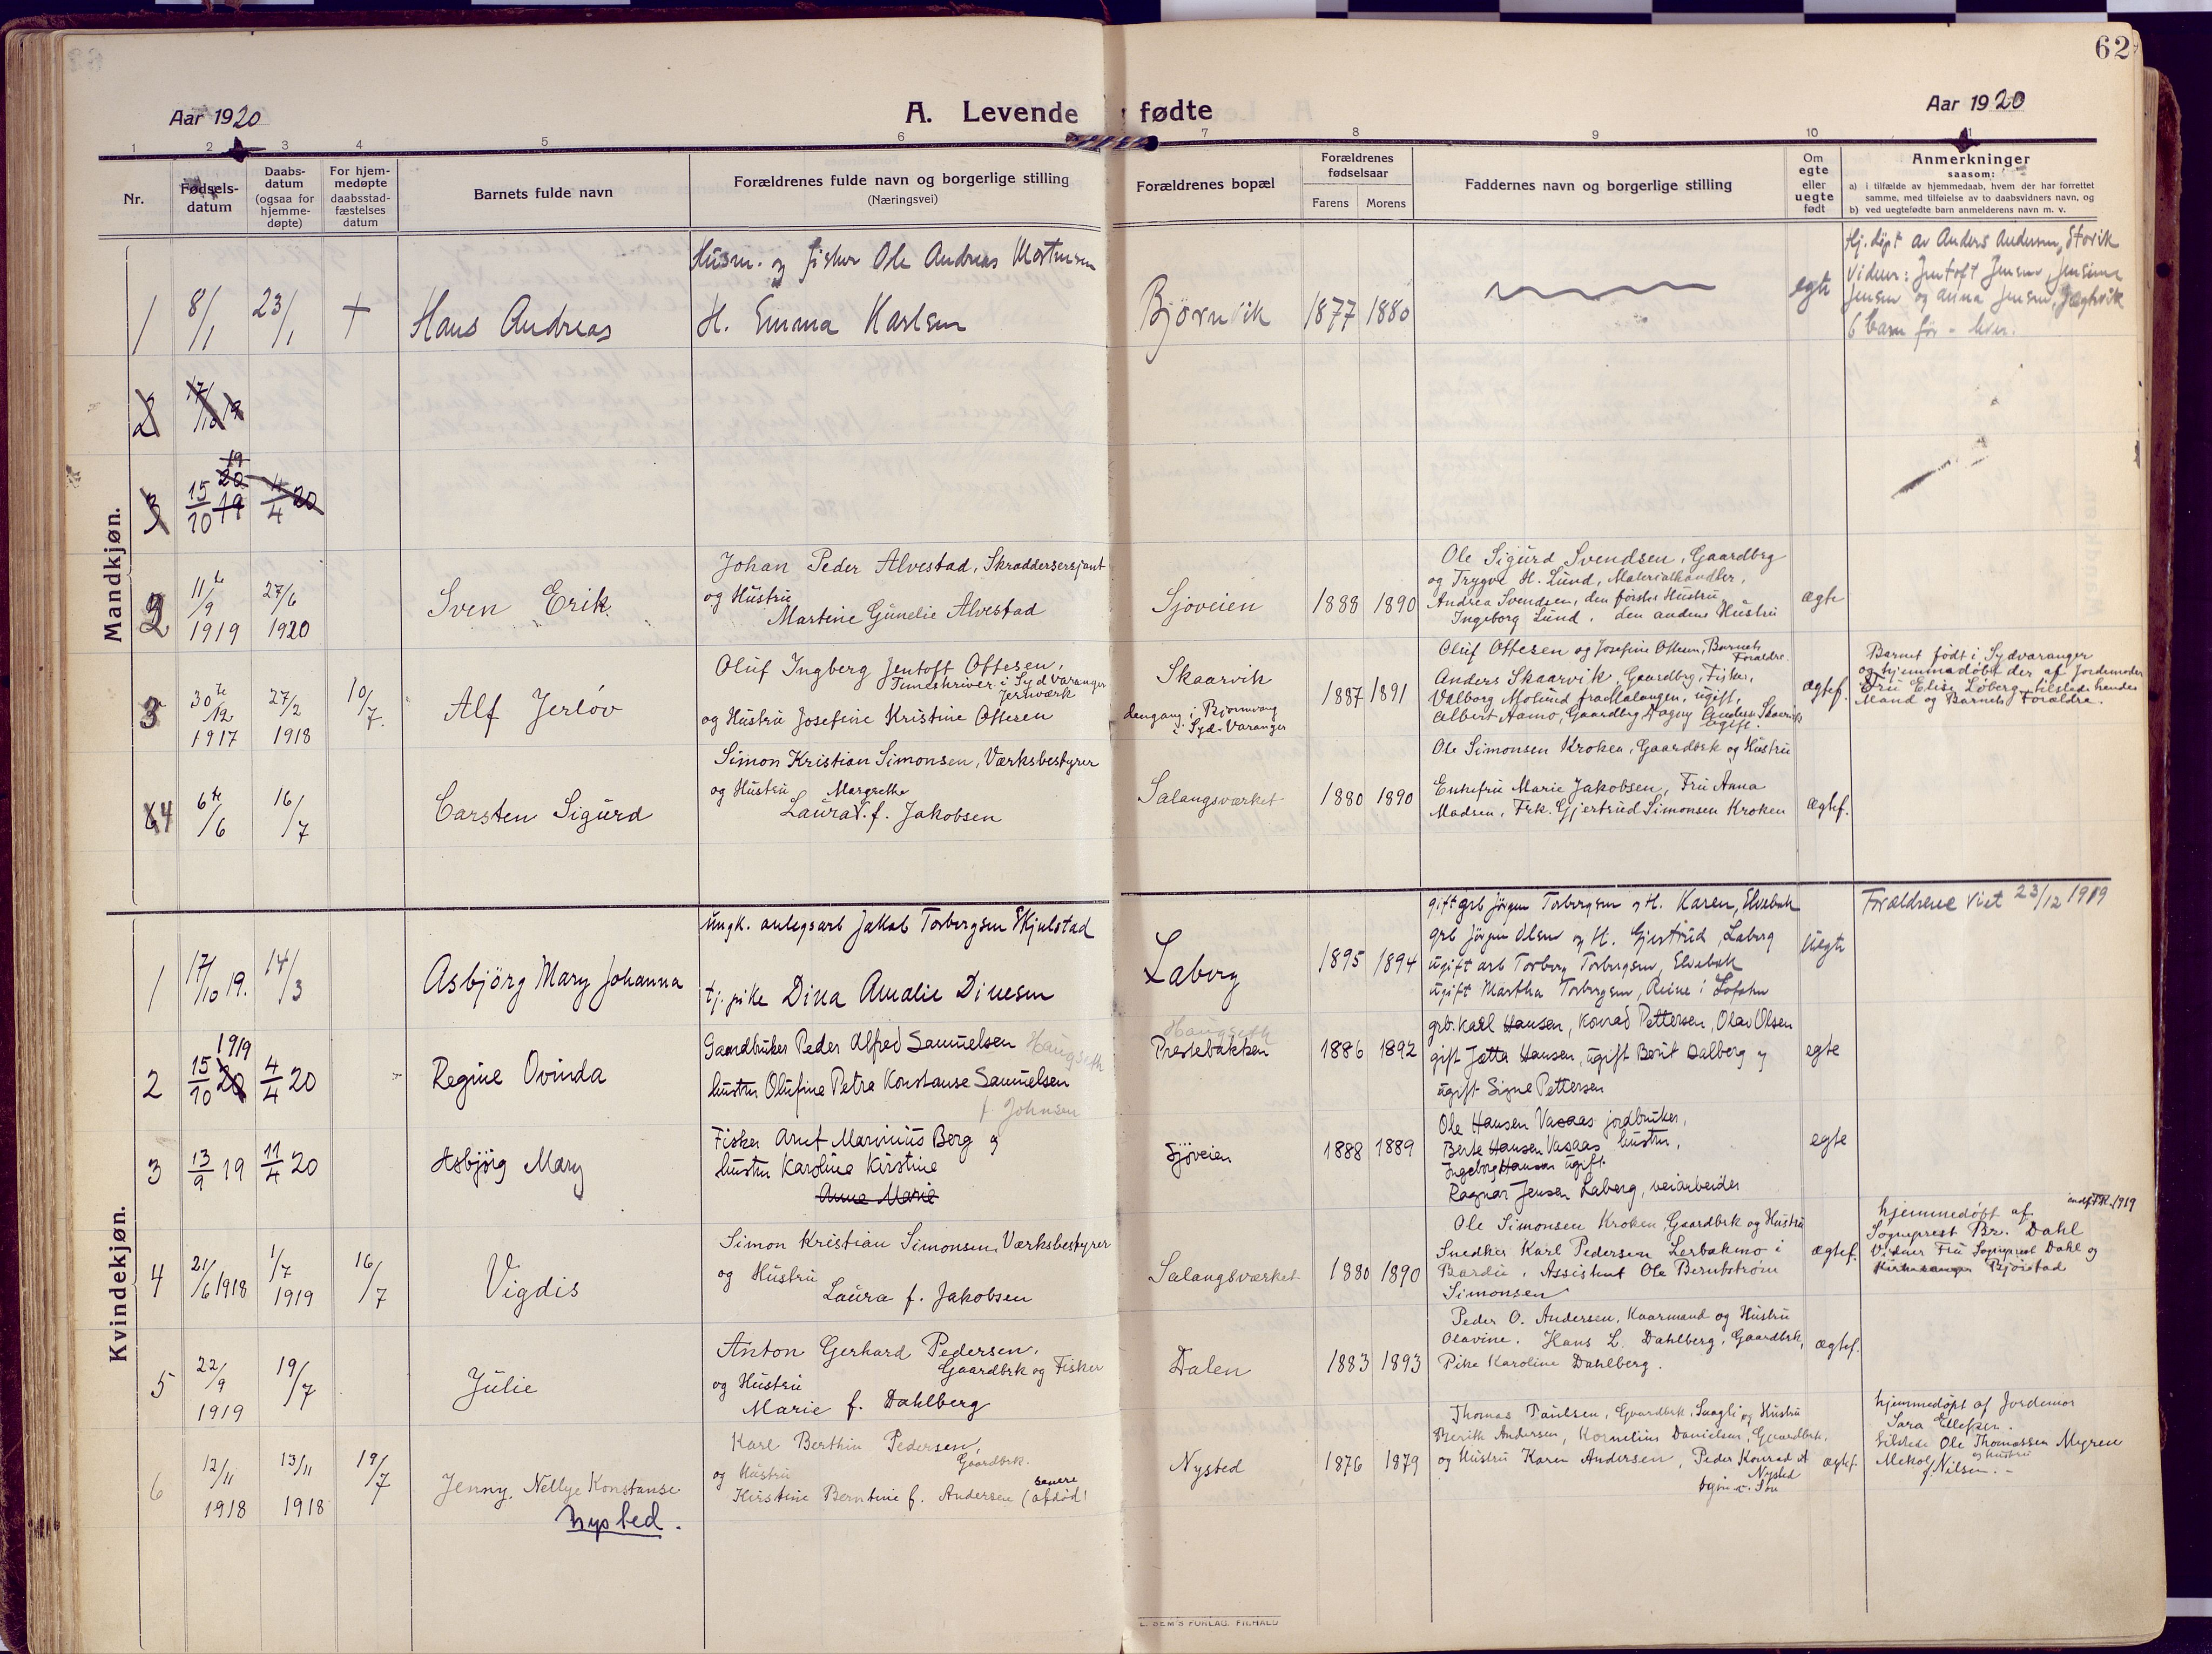 62
Aar 1920
A. Levende fødte
Aar 1920
1 2 3 4 5 6 7 8 9 10 11
Nr.
Fødsels-
datum
Daabs-
datum
(ogsaa for
hjemme-
døpte)
For hjem-
medøpte
daabsstad-
fæstelses
datum
Barnets fulde navn
Forældrenes fulde navn og borgerlige stilling
(Næringsvei)
Forældrenes bopæl
Forældrenes
fødselsaar
Farens Morens
Faddernes navn og borgerlige stilling
Om
egte
eller
uegte
født
Anmerkninger
saasom:
a) i tilfælde av hjemmedaab, hvem der har forrettet
samme, med tilføielse av to daabsvidners navn, og
b) ved uegtefødte barn anmelderens navn m. v.
Mandkjøn.
1 8/1 23/1 + Hans Andreas
Husm. og fisker Ole Andreas Mortensen
H. Emma Karlsen
Bjørnvik 1877 1880 egte
Hj.døpt av Anders Andersen, Storvik
Vidner: Jentoft Jensen, Jensine
Jensen og Anna Jensen, Jægtvik
6 barn før - lever.
2 17/10 19
3 15/10 19 20 19 4/4 20
2 11te/9 1919 27/6 1920 Sven Erik
Johan Peder Alvestad, Skræddersersjant
og Hustru
Martine Gunelie Alvestad
Sjøveien 1888 1890
Ole Sigurd Svendsen, Gaardbrg
og Trygve H. Lund, Materialhandler,
Andrea Svendsen, den førstes Hustru
Ingeborg Lund, den andens Hustru
ægte
3 30te/12 1917 27/2 1918 10/7. Alf Jerløv
Oluf Ingberg Jentoft Ottesen,
Timeskriver i Sydvaranger
Jernværk
og Hustru Josefine Kristine Ottesen
Skaarvik
dengang i Bjørnvang
i Syd-Varanger
1887 1891
Oluf Ottesen og Josefine Ottesen, Barnets
Forældre.
Anders Skaarvik, Gaardbrg, Fisker,
Valborg Molund fra Malangen, ugift,
Albert Aamo, Gaardbrg Dagny Anders. Skaarvik
ugift.
ægtef.
Barnet født i Sydvaranger
og hjemmedøbt der af Jordemoder
Fru Elise Løberg, tilstede hendes
Mand og Barnets Forældre.
4 6te/6 16/7 Carsten Sigurd
Simon Kristian Simonsen, Værksbestyrer
og Hustru Margrethe
Laura f. Jakobsen
Salangsværket 1880 1890
Ole Simonsen Kroken, Gaardbrk og Hustru
Enkefru Marie Jakobsen, Fru Anna
Madsen, Frk. Gjertrud Simonsen Kroken
ægtef.
Kvindekjøn.
1 17/10 19. 14/3 Asbjörg Mary Johanna
Ungk. anlegsarb Jakob Torbergsen Skjelstad
tj. pike Dina Amalie Dinesen
Laberg 1895 1894
gift grb Jørgen Torbergsen og H. Karen, Elvebak
grb Jørgen Olsen og H. Gjertrud, Laberg
ugift arb Torberg Torbergsen, Elvebak
ugift Martha Torbergsen, Reine i Lofoten
Uegte
Forældrene viet 23/12 1919
2 1919 15/10 20 4/4 20 Regine Ovinda
Gaardbruker Peder Alfred Samuelsen Haugseth
hustru Olufine Petra Konstanse Samuelsen
f. Johnsen
Haugseth
Prestebakken 1886 1892
grb. Karl Hansen, Konrad Pettersen, Olav Olsen
gift Jetta Hansen, ugift Berit Dalberg og
ugift Signe Pettersen
egte
3 13/9 19 11/4 20 Asbjørg Mary
Fisker Arnt Marinius Berg og
hustru Karoline Kirstine
Anne Marie
Sjöveien 1888 1889
Ole Hansen Vasaas jordbruker,
Berte Hansen Vasaas hustru,
Ingeborg Hansen ugift.
Ragnar Jensen Laberg, veiarbeider
egte
4 21/6 1918 1/7 1919 16/7 Vigdis
Simon Kristian Simonsen, Værksbestyrer
og Hustru
Laura f. Jakobsen
Salangsværket 1880 1890
Ole Simonsen Kroken, Gaardbrk og Hustru
Snedker Karl Pedersen Lerbakmo i
Bardu, Assistent Ole Berntstrøm
Simonsen
ægtef.
hjemmedøbt af
Sogneprest Br. Dahl
Vidner Fru Sogneprest Dahl og
Kirkesanger Bjørstad
5 22/9 1919 19/7 Julie
Anton Gerhard Pedersen,
Gaardbrk og Fisker
og Hustru
Marie f. Dahlberg
Dalen 1883 1893
Peder O. Andersen, Kaarmand og Hustru
Olavine. Hans L. Dahlberg, Gaardbrk,
Pike Karoline Dahlberg.
ægtef.
6 12/11 1918 13/11 1918 19/7 Jenny Nellye Konstanse
Nysted.
Karl Berthin Pedersen,
Gaardbrk.
og Hustru
Kirstine Berntine f. Andersen (senere afdød)
Nysted 1876 1879
Thomas Paulsen, Gaardbrk, Saagli og Hustru
Berith Andersen, Kornelius Danielsen, Gaardbrk,
og Hustru Karen Andersen, Peder Konrad A
Nysted
ægtef.
hjemmedøpt af Jordemor
Sara Ellefsen.
tilstede Ole Thomassen Myren
og Hustru
Mekol f Nilsen.-
E. SEM'S FORLAG, FR.HALD